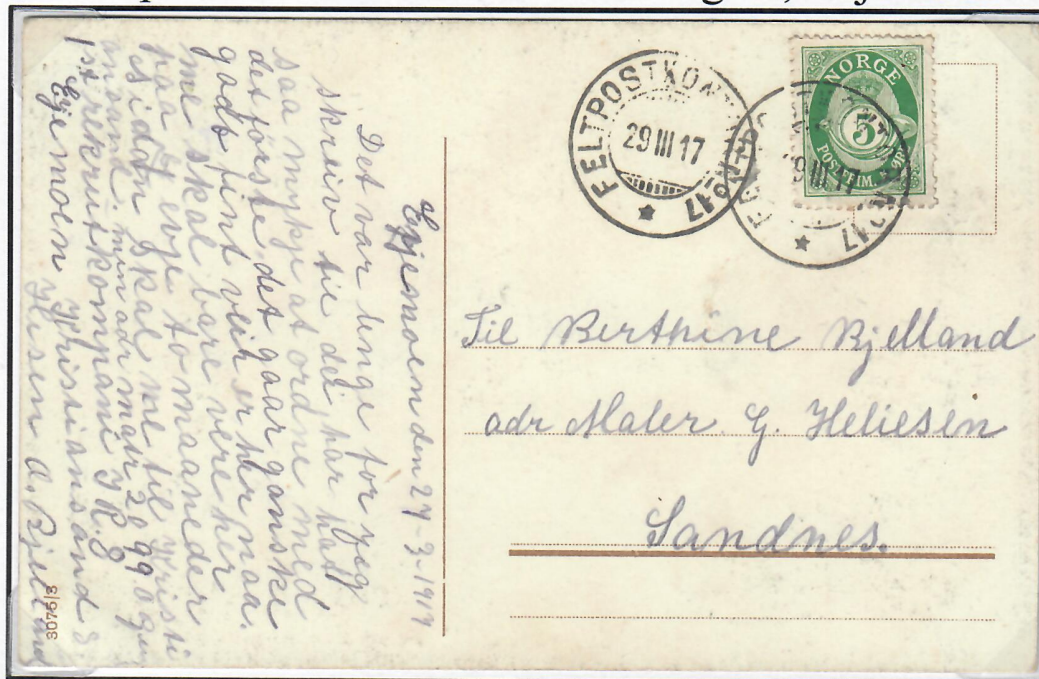 FELTPOSTKON
29 III 17
No 17
NORGE
5
POSTFRIM. ØRE
29 III 17
No 17
Til Berthine Bjelland
adr Maler G. Heliesen
Sandnes.
Evjemoen den 27-3-1917
Det var lenge før jeg
skreiv til dei har hatt
saa mykje at ordne med
det første det gaar ganske
godt fint veir er her naa.
me skal bare vere her
paa Evje to maaneder
Sidan skal me til Kristi
ansand min adr maa 299 og
1ste rekrutkompani I.R. 8
Evjemoen Kristiansand S.
Hilsen A. Bjelland
3075/3